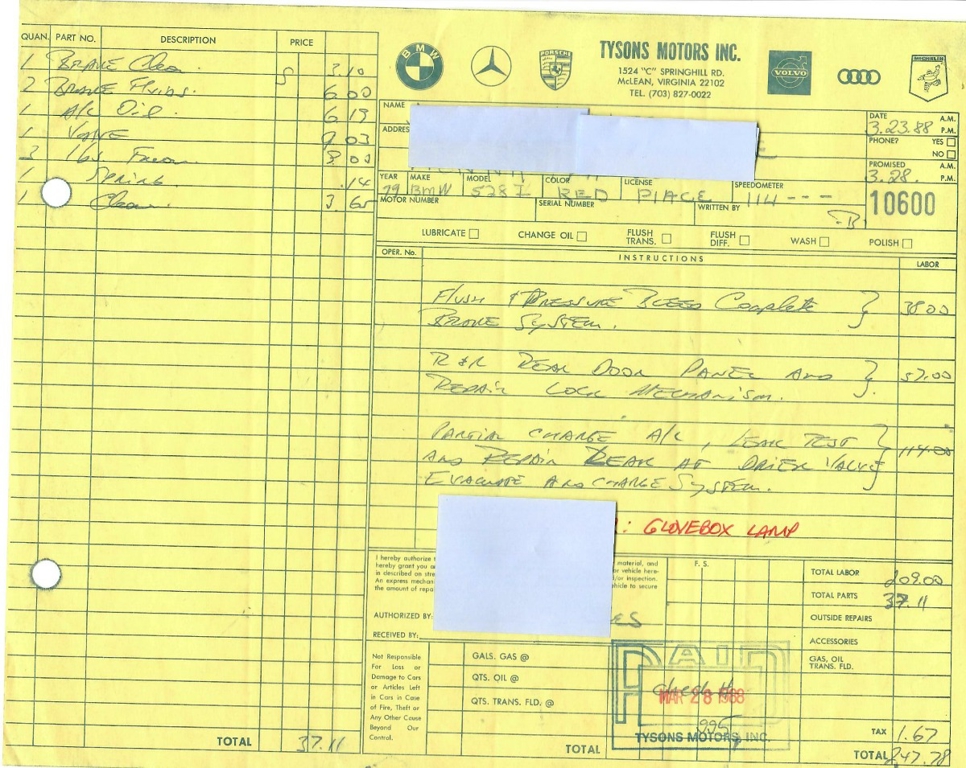 QUAN. PART NO. DESCRIPTION PRICE
1 BRAKE Clean 3.10
2 BRAKE Fluids. 6.00
1 A/C Oil 6.19
1 VALVE 9.03
3 lbs. Freon 9.00
1 Spring .14
1 Clean 3.65
TOTAL 37.11
BMW
PORSCHE
TYSONS MOTORS INC.
1524 "C" SPRINGHILL RD.
McLEAN, VIRGINIA 22102
TEL. (703) 827-0022
VOLVO
MICHELIN
NAME
ADDRES
DATE A.M.
3.23.88 P.M.
PHONE? YES
NO
PROMISED A.M.
3.28. P.M.
YEAR MAKE MODEL COLOR LICENSE SPEEDOMETER
79 BMW 528 I RED PIACE 114 ---
MOTOR NUMBER SERIAL NUMBER WRITTEN BY
10600
LUBRICATE CHANGE OIL FLUSH TRANS. FLUSH DIFF. WASH POLISH
OPER. No. INSTRUCTIONS LABOR
FLUSH & PRESSURE BLEED Complete 38.00
BRAKE SYSTEM.
R & R REAR DOOR PANEL AND 57.00
REPAIR LOCK MECHANISM.
PARTIAL CHARGE A/C, LEAK TEST 114.00
AND REPAIR LEAK AT DRIER VALVE
EVACUATE AND CHARGE SYSTEM.
: GLOVEBOX LAMP
I hereby authorize t material, and
hereby grant you a or vehicle here-
in described on stre /or inspection.
An express mechan hicle to secure
the amount of repa
AUTHORIZED BY: ES
RECEIVED BY:
F. S.
TOTAL LABOR 209.00
TOTAL PARTS 37.11
OUTSIDE REPAIRS
ACCESSORIES
GAS, OIL
TRANS. FLD.
Not Responsible
For Loss or
Damage to Cars
or Articles Left
in Cars in Case
of Fire, Theft or
Any Other Cause
Beyond Our
Control.
GALS. GAS @
QTS. OIL @
QTS. TRANS. FLD. @
TOTAL
PAID
Check #
MAR 28 1988
995
TYSONS MOTORS, INC.
TAX 1.67
TOTAL 247.78